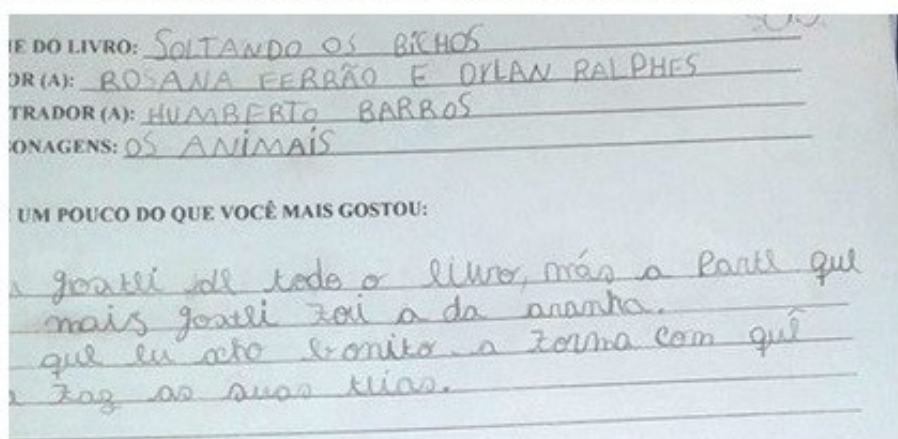 E DO LIVRO: SOLTANDO OS BICHOS
OR (A): ROSANA FERRÃO E DYLAN RALPHES
TRADOR (A): HUMBERTO BARROS
ONAGENS: OS ANIMAIS
UM POUCO DO QUE VOCÊ MAIS GOSTOU:
gostei de todo o livro, más a Parte que
mais gostei foi a da aranha.
que eu acho bonito a forma com quê
faz as suas teias.